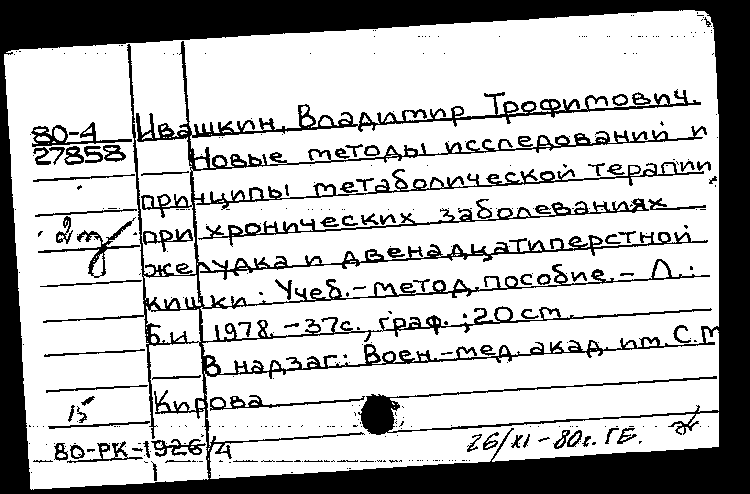 80-4
27858
Ивашкин, Владимир Трофимович.
Новые методы исследований и
принципы метаболической терапии
при хронических заболеваниях
желудка и двенадцатиперстной
кишки: Учеб.-метод. пособие. - Л.:
Б.и 1978. - 37с., граф. ; 20 см.
В надзаг.: Воен.-мед. акад. им. С.М
Кирова.
15
80-РК-1926/4
26/XI-80г. ГЕ.